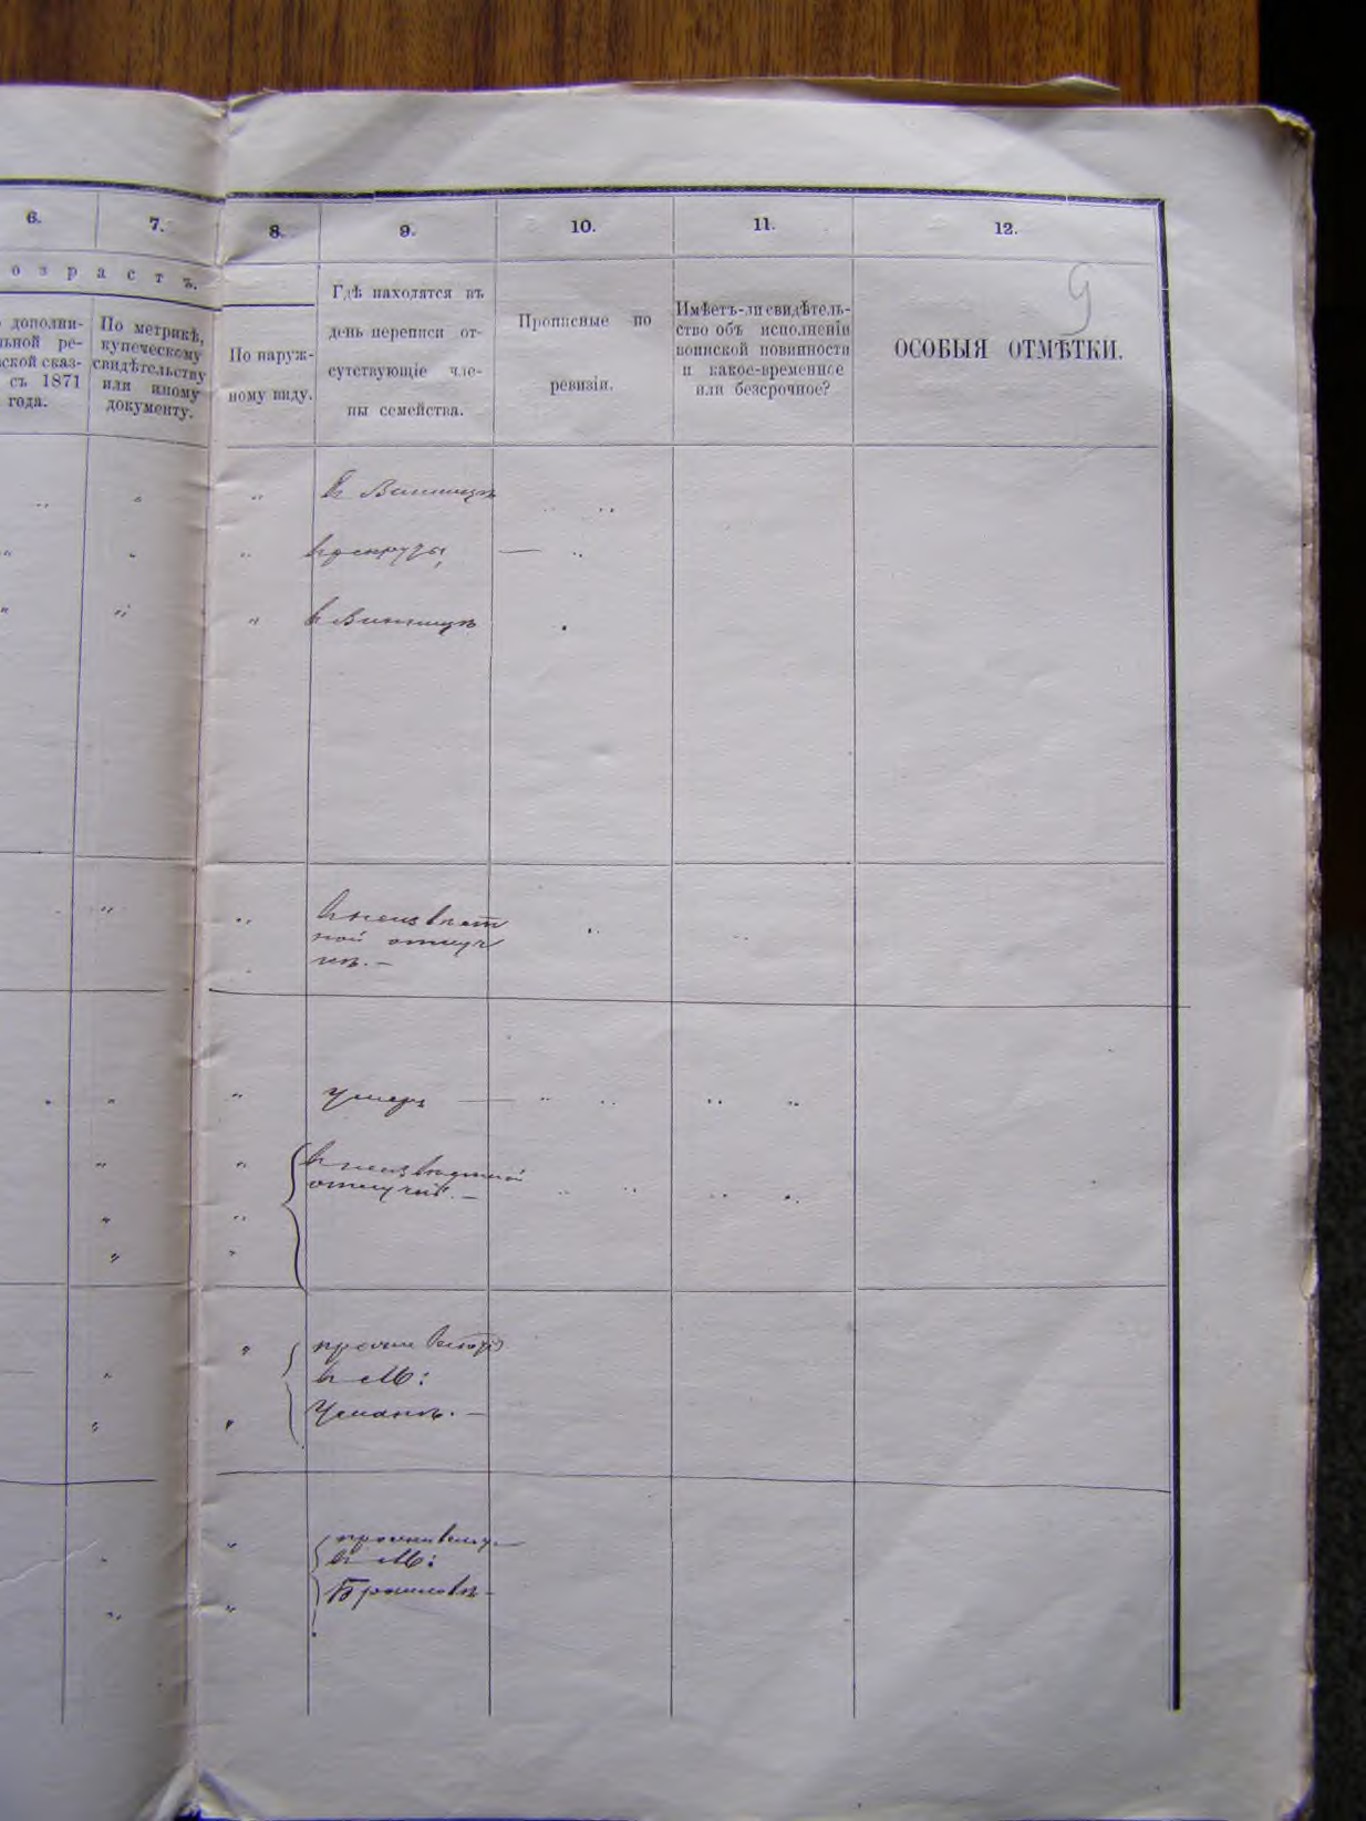 6.
7.
8.
9.
10.
11.
12.
о з р а с т ъ.
9
дополни-
ьной ре-
ской сказ-
съ 1871
года.
По метрикѣ,
купеческому
свидѣтельству
или иному
документу.
По наруж-
ному виду.
Гдѣ находятся въ
день переписи от-
сутствующіе чле-
ны семейства.
Прописные по
ревизіи.
Имѣетъ-ли свидѣтель-
ство объ исполненіи
воинской повинности
и какое-временное
или безсрочное?
ОСОБЫЯ ОТМѢТКИ.
въ Винницѣ
въ Винницѣ
въ неизвѣст
ной отлуч
кѣ. —
Умеръ —
въ неизвѣстной
отлучкѣ. —
въ М:
Умань. —
въ М:
Брошловъ —